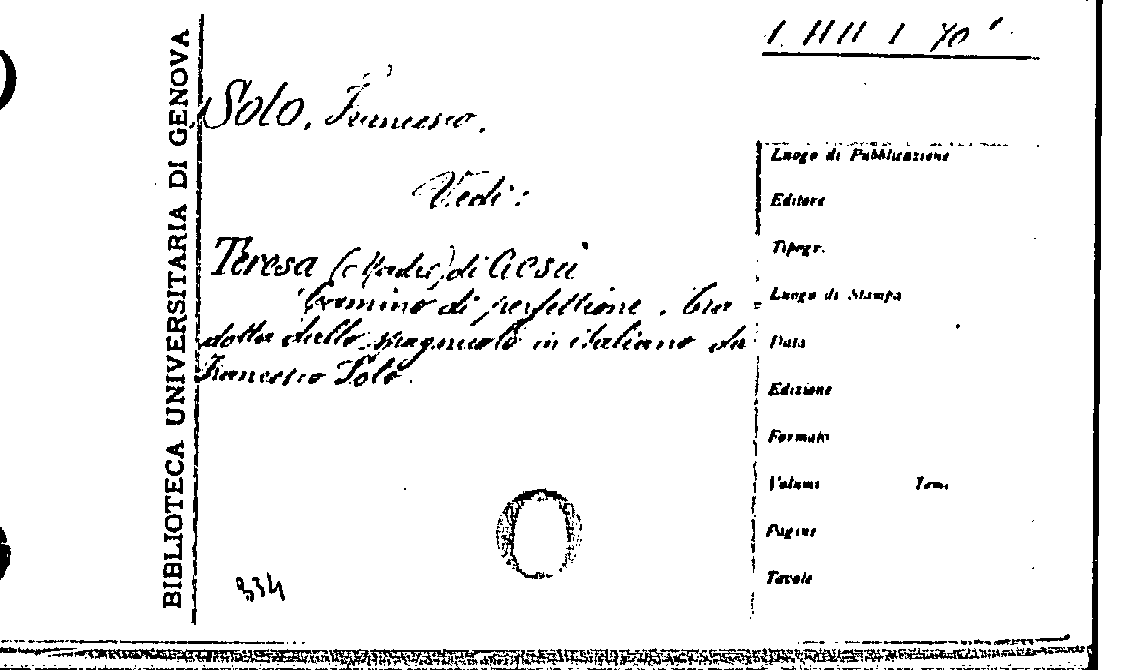 BIBLIOTECA UNIVERSITARIA DI GENOVA
Solo, Francesco.
Vedi:
Teresa (Madre) di Gesù
Cammino di perfettione. Tra-
dotta dallo spagnuolo in italiano da
Francesco Solo.
334
Luogo di Pubblicazione
Editore
Tipogr.
Luogo di Stampa
Data
Edizione
Formato
Volumi Tomi
Pagine
Tavole